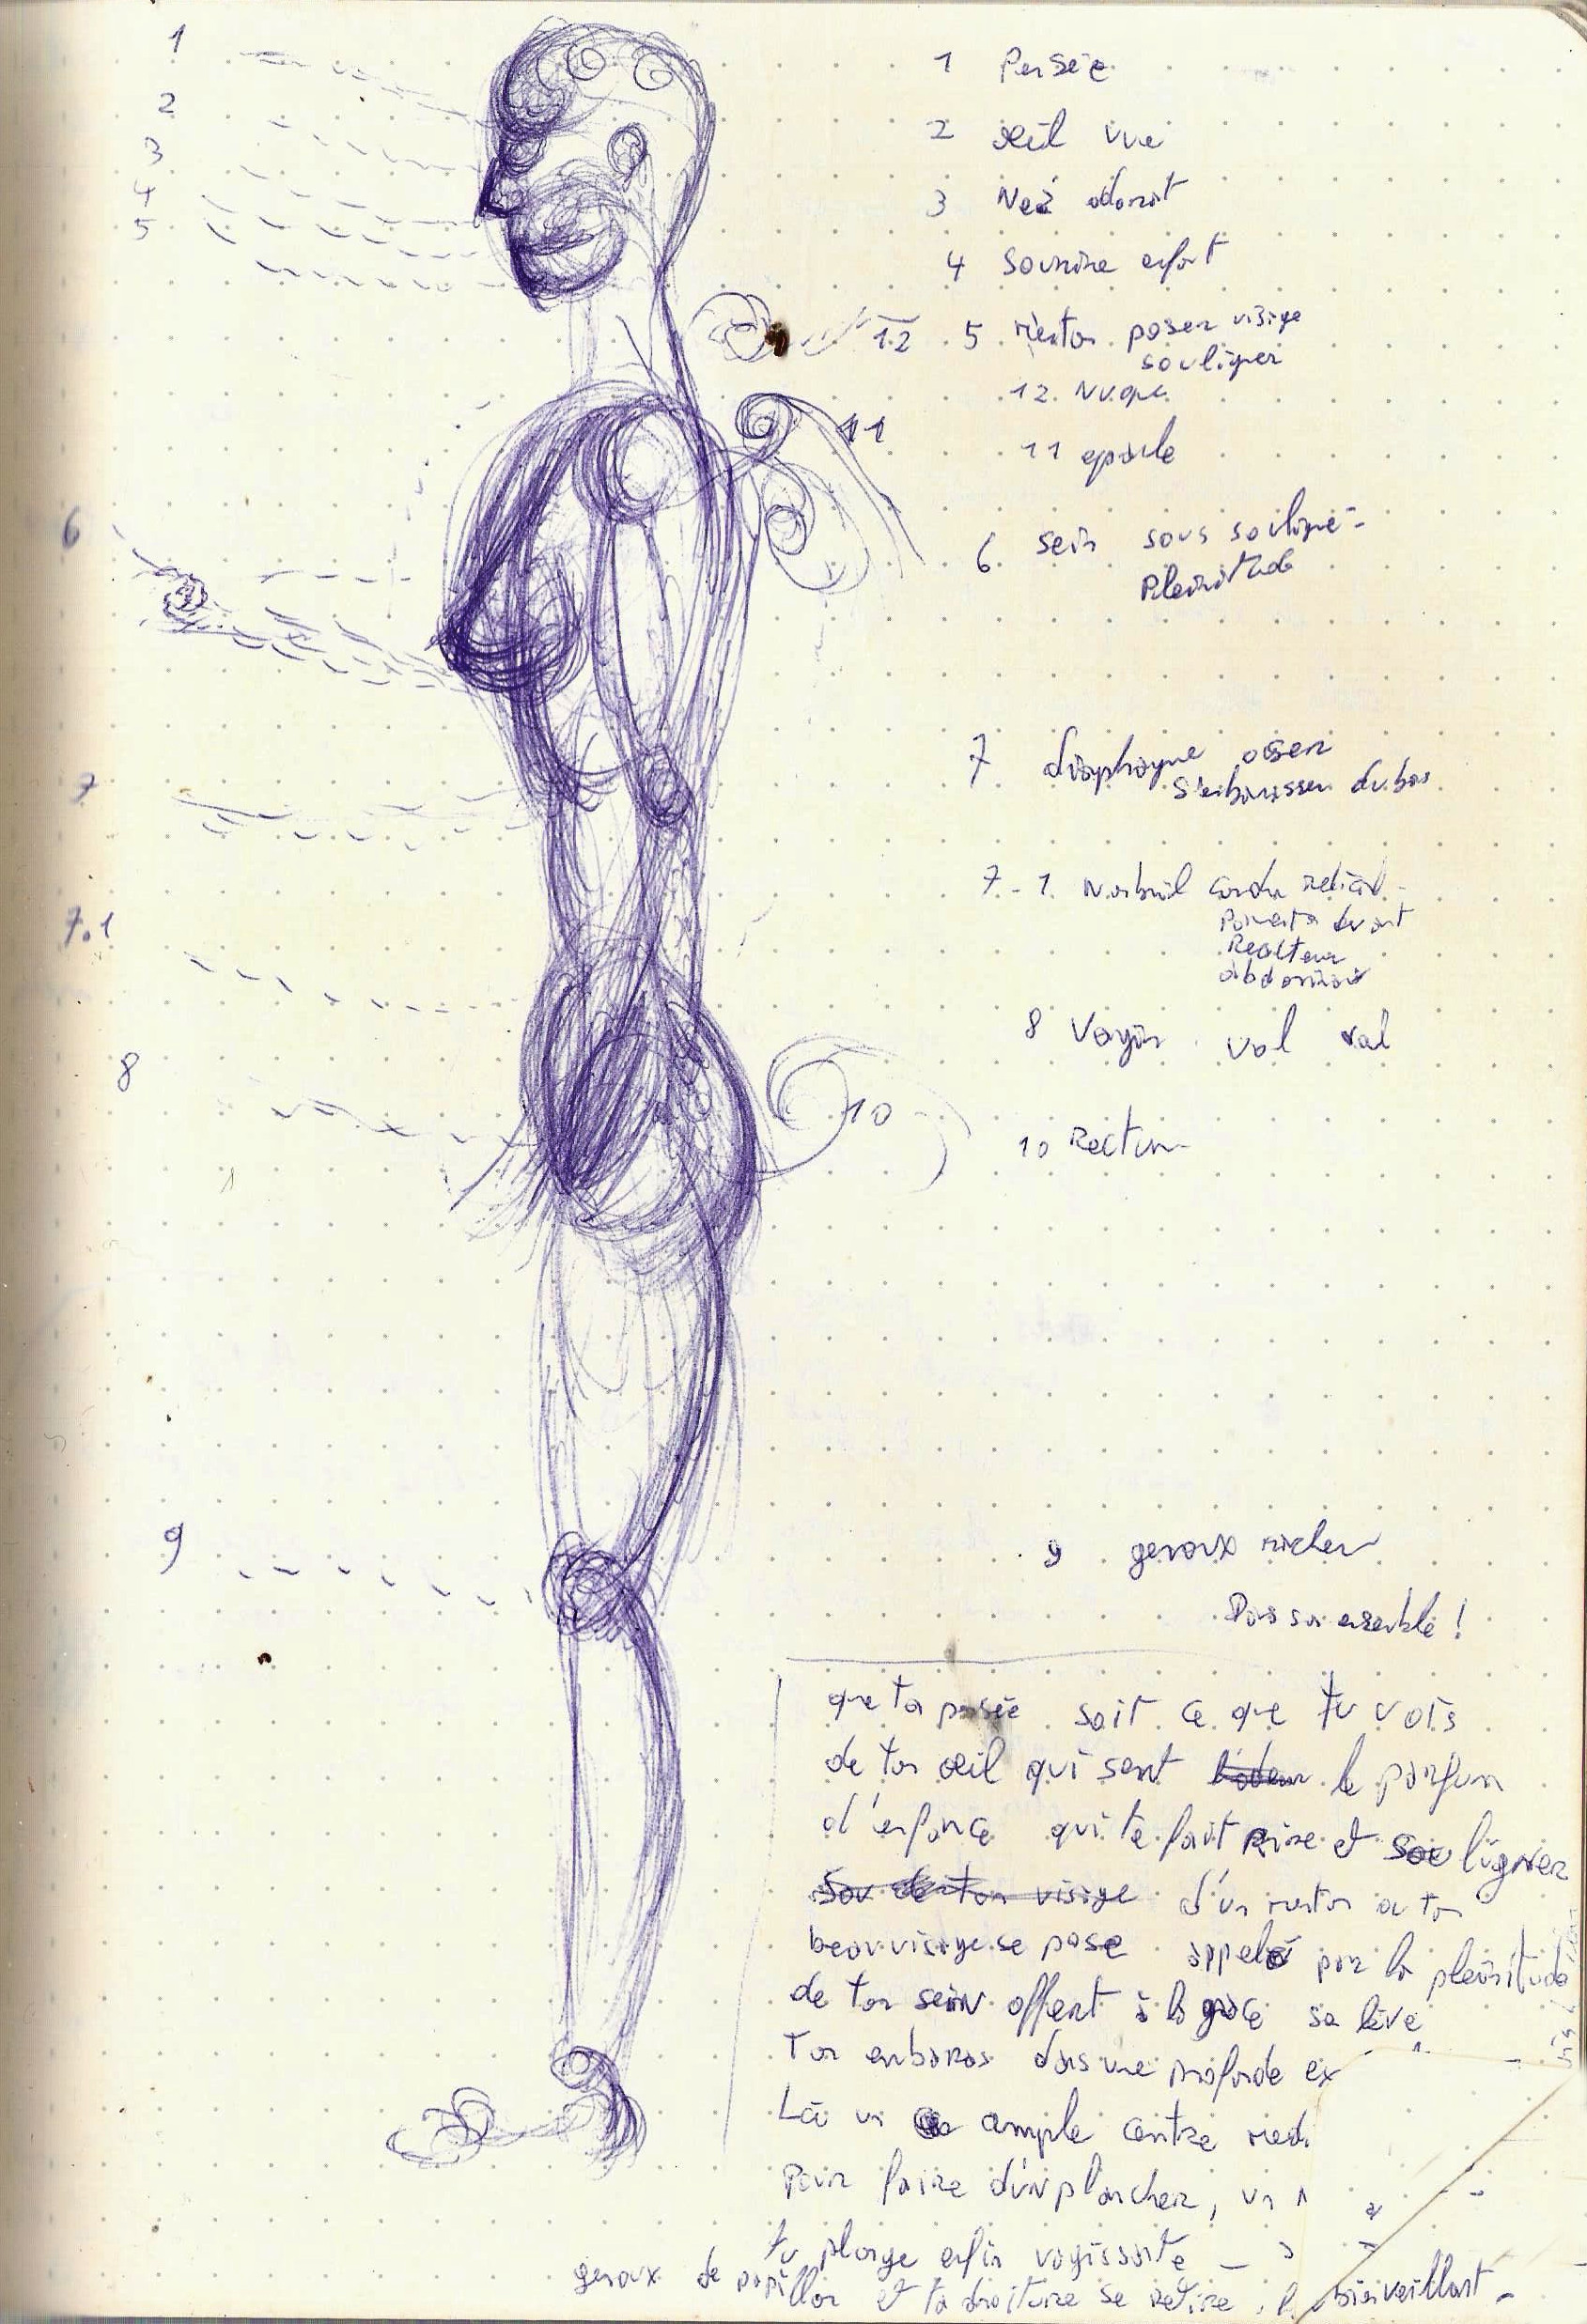 1
2
3
4
5
6
7
7.1
8
9
10
11
12
1 Pensée
2 œil vue
3 Nez odorat
4 Sourire enfant
5 menton poser visage
souligner
12. Nuque
11 epaule
6 sein sous souligné-
Pleinitude
7 diaphragme oser
S'enbarasser du bas
7-1. Nombril cordon
devant
8 Vagin val
10 Rectum
9 genoux
Dans son ensemble !
que ta pensée soit ce que tu vois
de ton œil qui sent l'odeur le parfum
d'enfance qui te fait Rire et souligner
Sou de ton visage d'un menton ou ton
beau visage se pose appelé par la pleinitude
de ton sein offert à la grace se lève
Ton enbaras dans une profonde ex
Là un ample centre
Pour faire d'un plancher, un
tu plonge enfin vagissante
genoux de papillon et ta droiture se retire bienveillant-